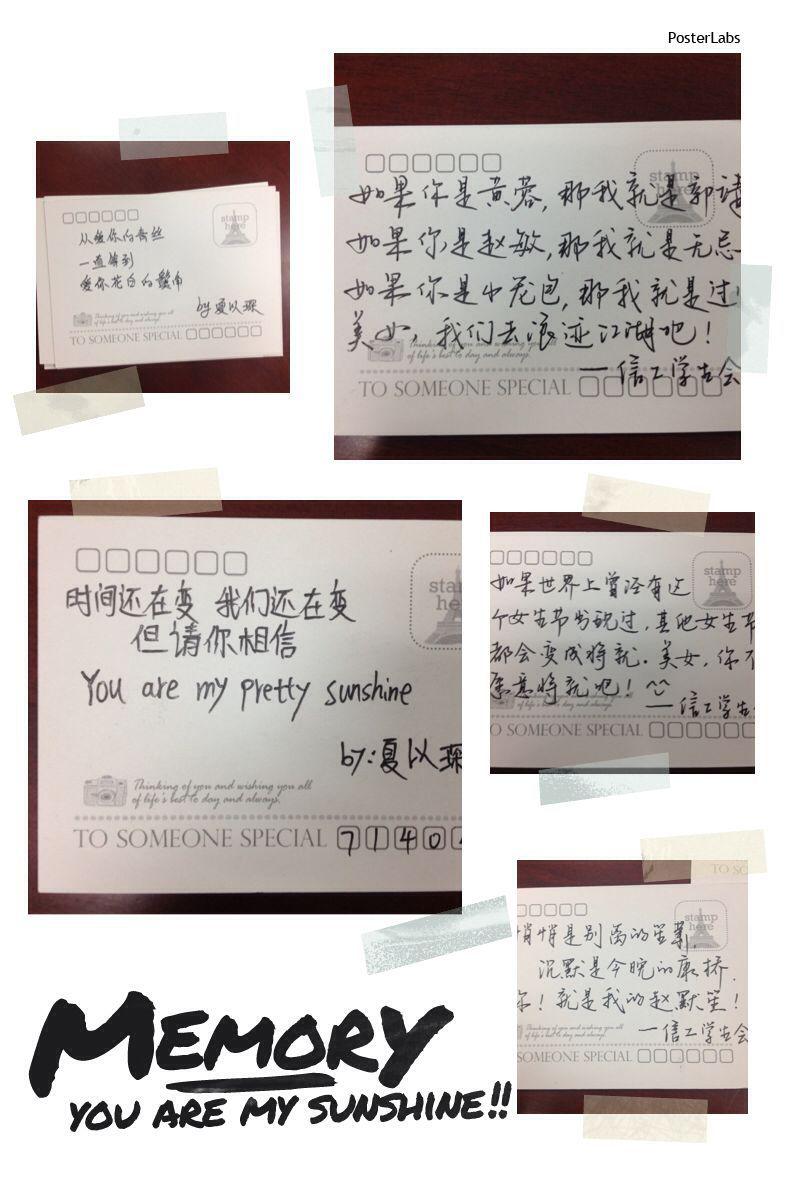 PosterLabs
stamp
here
从爱你的青丝
一直等到
爱你花白的鬓角
by 夏以琛
Thinking of you and wishing you all
of life's best to day and always.
TO SOMEONE SPECIAL
stamp
here
如果你是黄蓉，那我就是郭靖
如果你是赵敏，那我就是无忌
如果你是小龙包，那我就是过
美女，我们去浪迹江湖吧！
Thinking of you and wishing you all
of life's best to day and always.
—信工学生会
TO SOMEONE SPECIAL
stamp
he
时间还在变 我们还在变
但请你相信
You are my pretty sunshine
by：夏以琛
Thinking of you and wishing you all
of life's best to day and always.
TO SOMEONE SPECIAL 7140
stamp
here
如果世界上曾经有这
个女生节出现过，其他女生节
都会变成将就．美女，你不
愿意将就吧！
—信工学生
O SOMEONE SPECIAL
TO SO
stamp
here
悄悄是别离的笙箫．
沉默是今晚的康桥．
你！就是我的赵默笙！
Thinking of you and wishing you all
of life's best to day and always.
—信工学生会
SOMEONE SPECIAL
MEMORY
YOU ARE MY SUNSHINE!!